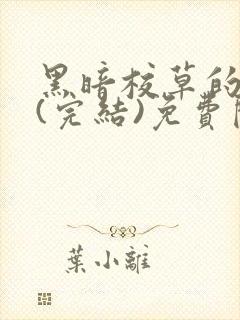 黑暗校草的
(完結)免費
葉小離